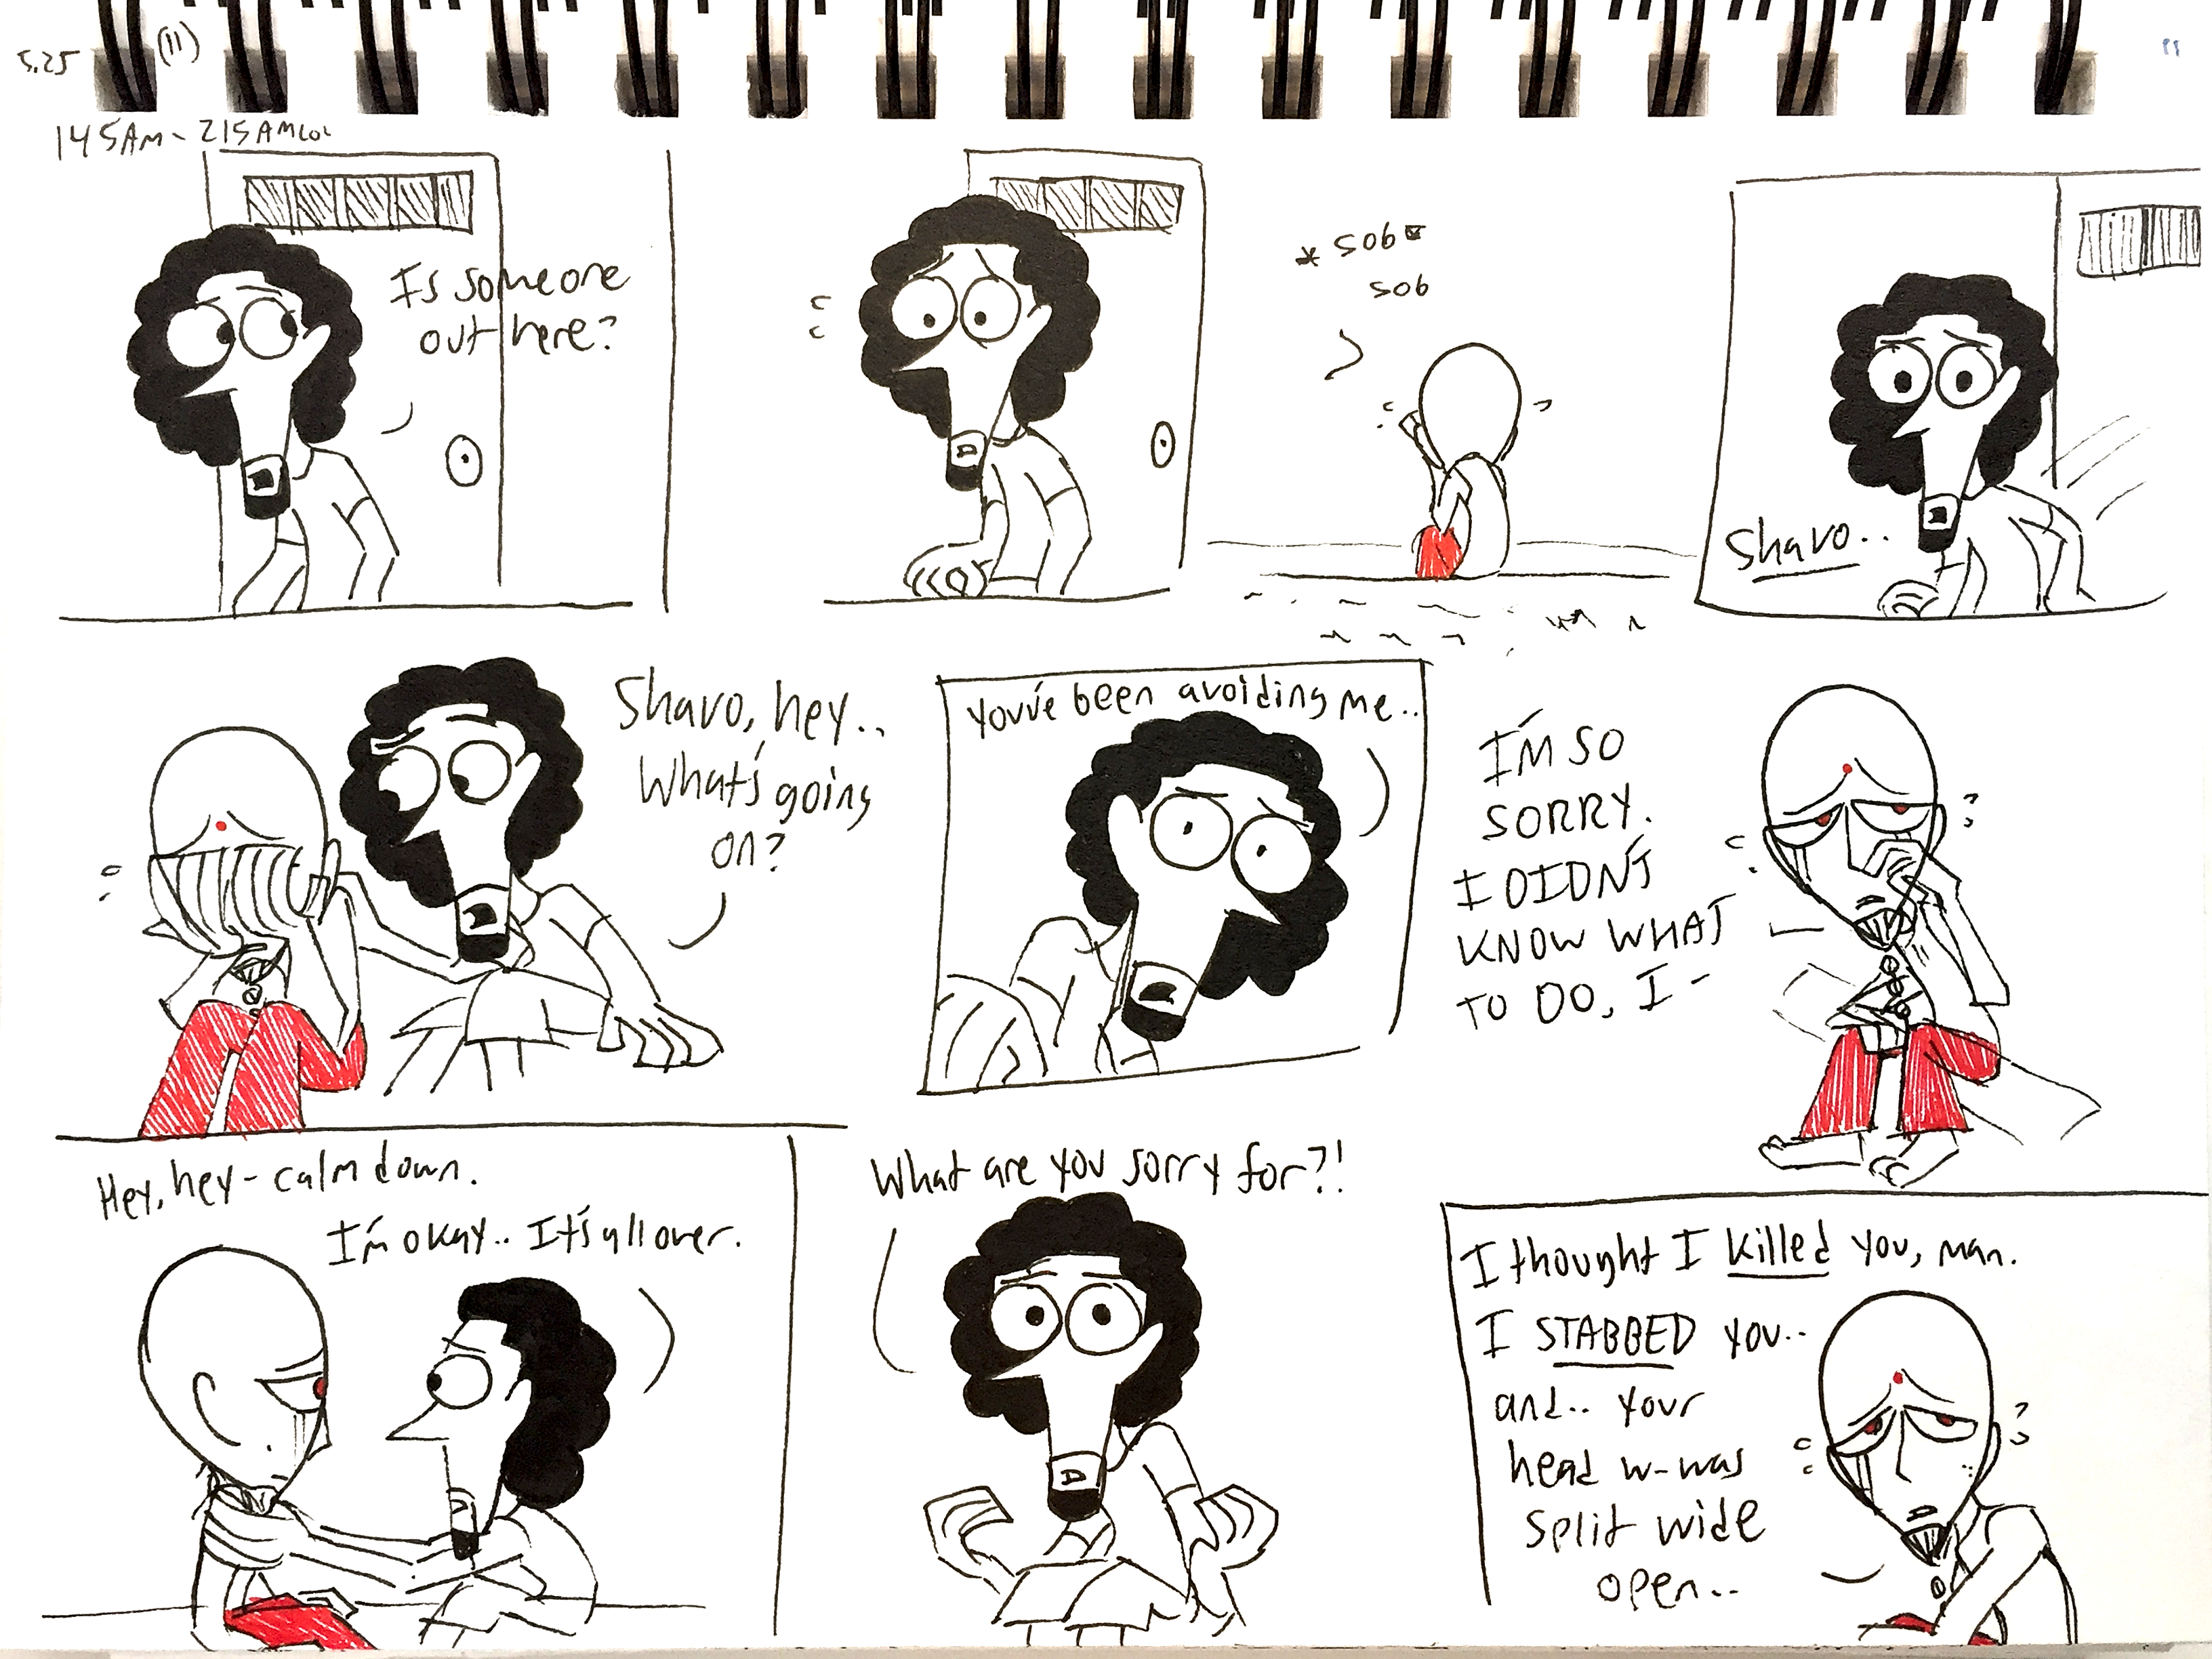 5.25
(11)
11
145AM - 215AM LOL
Is someone
out here?
* sob *
sob
Shavo..
Shavo, hey..
What's going
on?
You've been avoiding me..
I'M SO
SORRY.
I DIDN'T
KNOW WHAT
TO DO, I -
Hey, hey - calm down.
I'm okay.. It's all over.
What are you sorry for?!
I thought I killed you, man.
I STABBED you..
and.. your
head w-was
split wide
open..